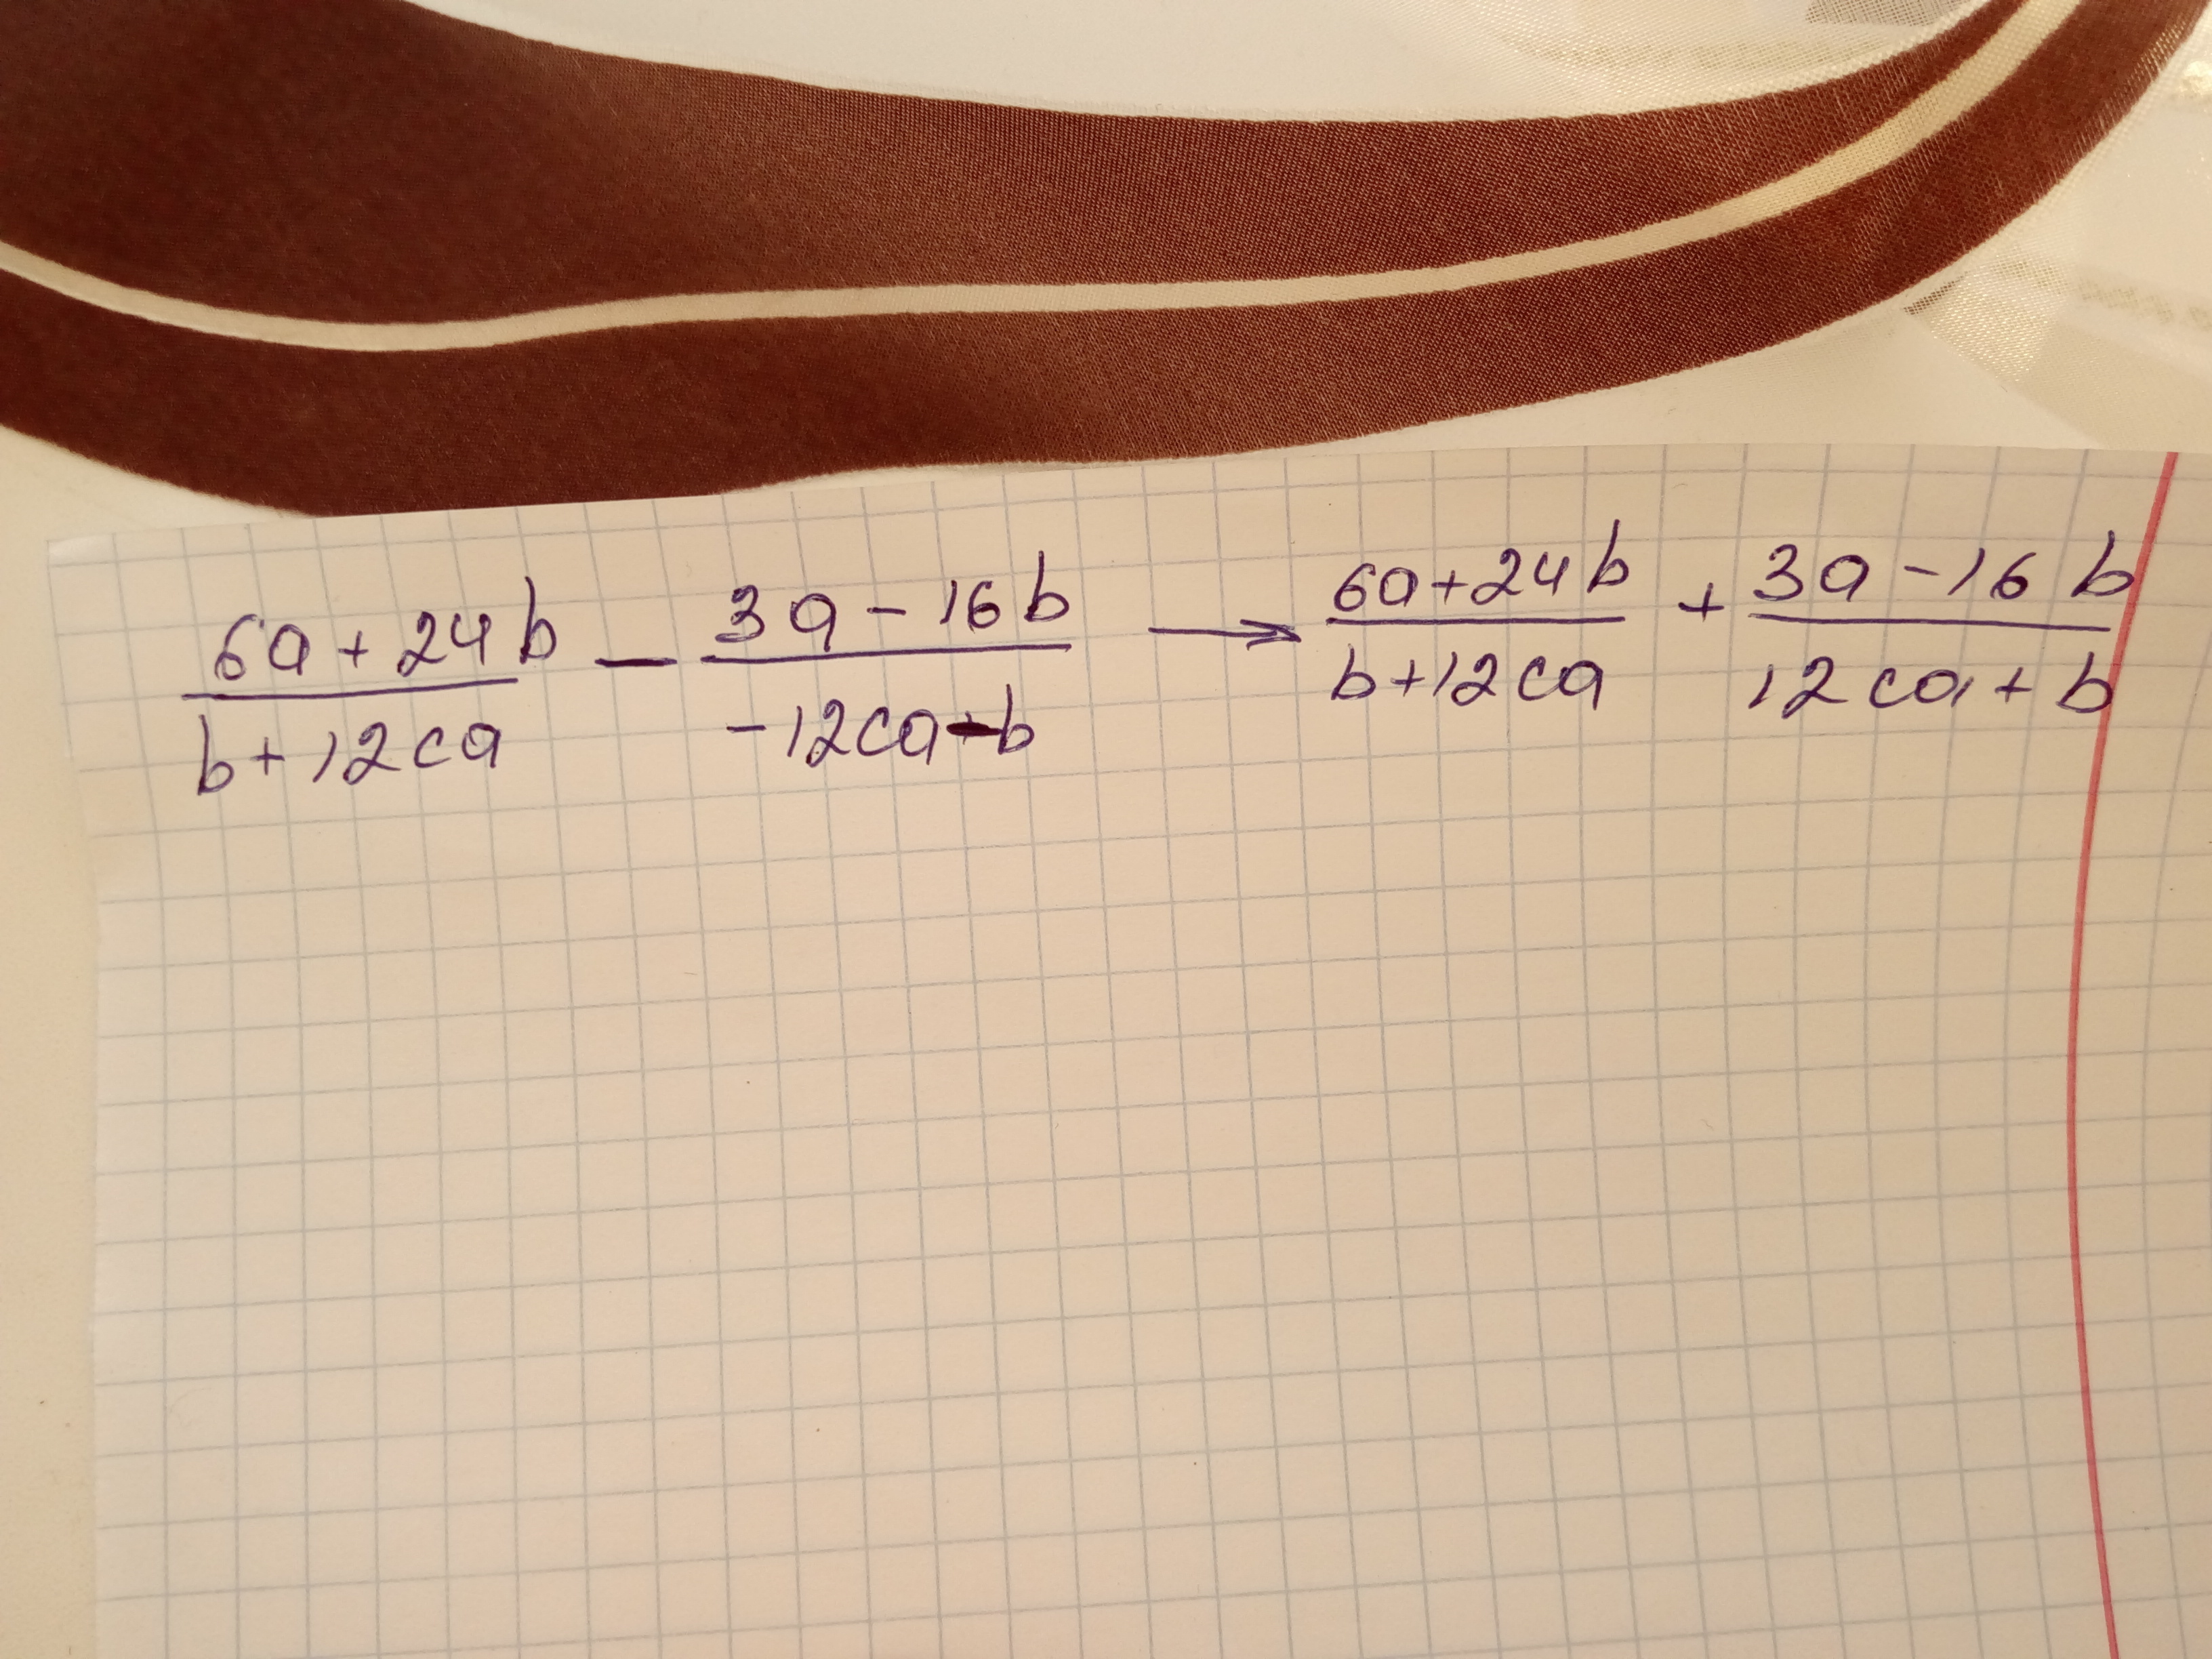 (6a + 24b)/(b + 12ca) — (3a - 16b)/(-12ca - b) → (6a + 24b)/(b + 12ca) + (3a - 16b)/(12ca + b)